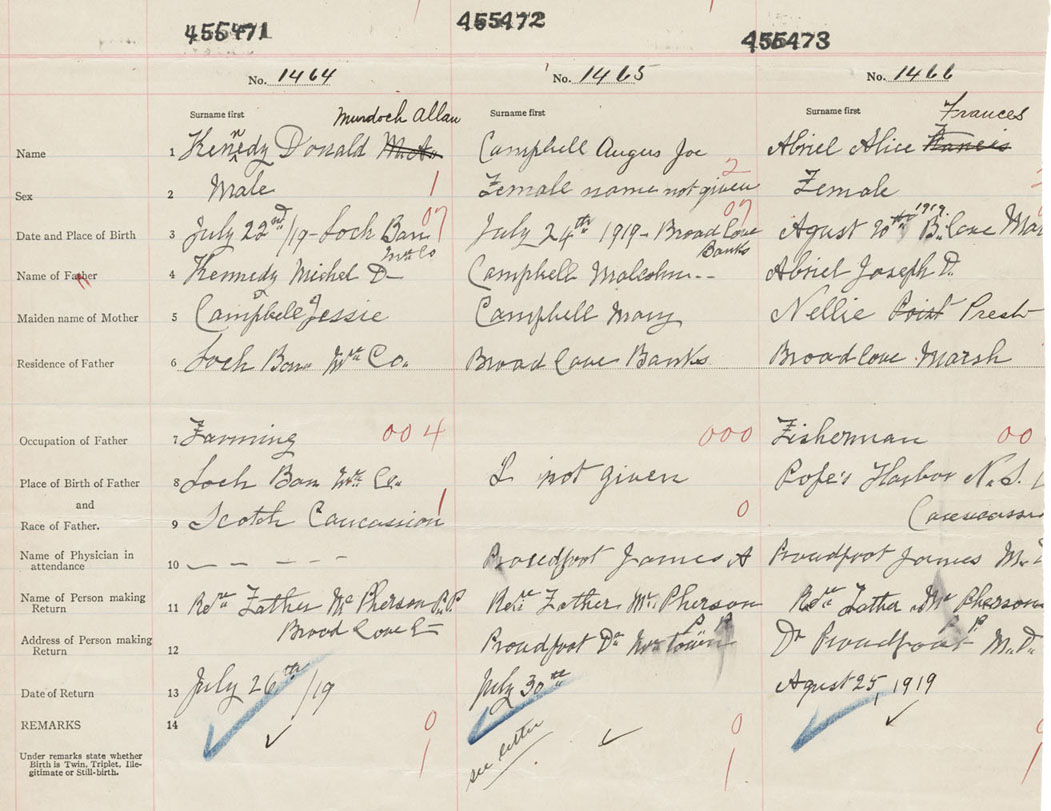 455471 455472 455473
No. 1464 No. 1465 No. 1466
Surname first Surname first Surname first
Murdoch Allan Frances
Name 1 Kennedy Donald Campbell Angus Joe Abriel Alice Francis
Sex 2 Male 1 Female name not given 2 Female
07 07
Date and Place of Birth 3 July 22nd/19- Loch Ban July 24th 1919- Broad Cove Agust 20th 1919. B. Cove Mar
Inv Co Banks
Name of Father 4 Kennedy Michel D Campbell Malcolm -- Abriel Joseph D.
Maiden name of Mother 5 Campbell Jessie Campbell Mary Nellie Point Prest
Residence of Father 6 Loch Ban Inv Co. Broad Cove Banks Broad Cove Marsh
Occupation of Father 7 Farming 004 000 Fisherman 00
Place of Birth of Father 8 Loch Ban Inv. Co. not given Pope's Harbor N.S.
and
Race of Father. 9 Scotch Caucassion 1 0
Name of Physician in attendance 10 – – – – Proudfoot James A Proudfoot James M.
Name of Person making Return 11 Revd Father McPherson P.P. Revd Father McPherson Revd Father McPherson
Broad Cove P.P. P.P.
Address of Person making Return 12 Proudfoot Dr Inv town Dr Proudfoot M.D.
Date of Return 13 July 26th/19 July 30th Agust 25, 1919
REMARKS 14 0 0
Under remarks state whether
Birth is Twin, Triplet, Ille-
gitimate or Still-birth.
see letter
1 1 1